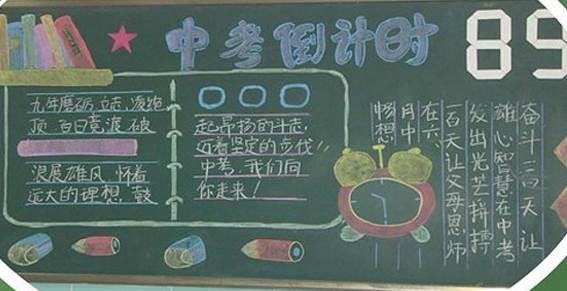 中考倒计时
89
九年磨砺 立志 凌绝
顶 百日竞渡 破
浪展雄风 怀着
远大的理想 鼓
起昂扬的斗志
迈着坚定的步伐
中考 我们向
你走来！
奋斗百天 让
雄心智慧在中考
发出光芒 拼搏
百天 让父母恩师
在六
月中
畅想